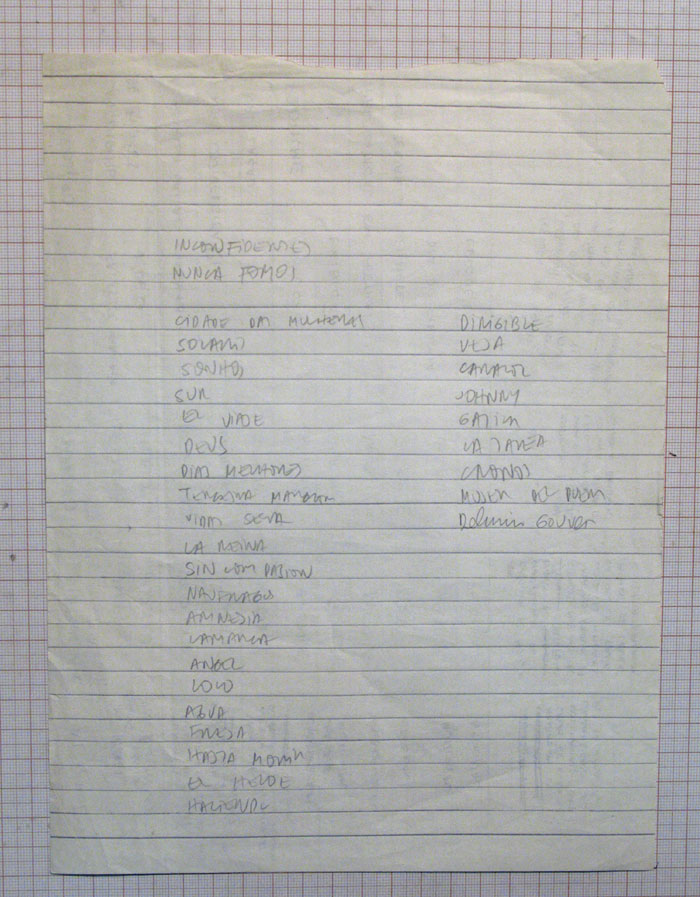 INCONFIDENTES
NUNCA FOMOS
CIDADE DAS MULHERES
SOLANO
SONHOS
SUR
EL VIAJE
DEUS
DIAS MELHORES
TERCEIRA MARGEM
VIDAS SECA
LA REINA
SIN COMPASION
NAUFRAGOS
AMNESIA
LAMARCA
ANGEL
LOLO
AGUA
FRESA
HASTA MORIR
EL HEROE
HACIENDO
DIRIGIBLE
VEJA
CARACOL
JOHNNY
GATICA
LA TAREA
CRONOS
MUJER DEL PUERTO
Delmiro Gouvea